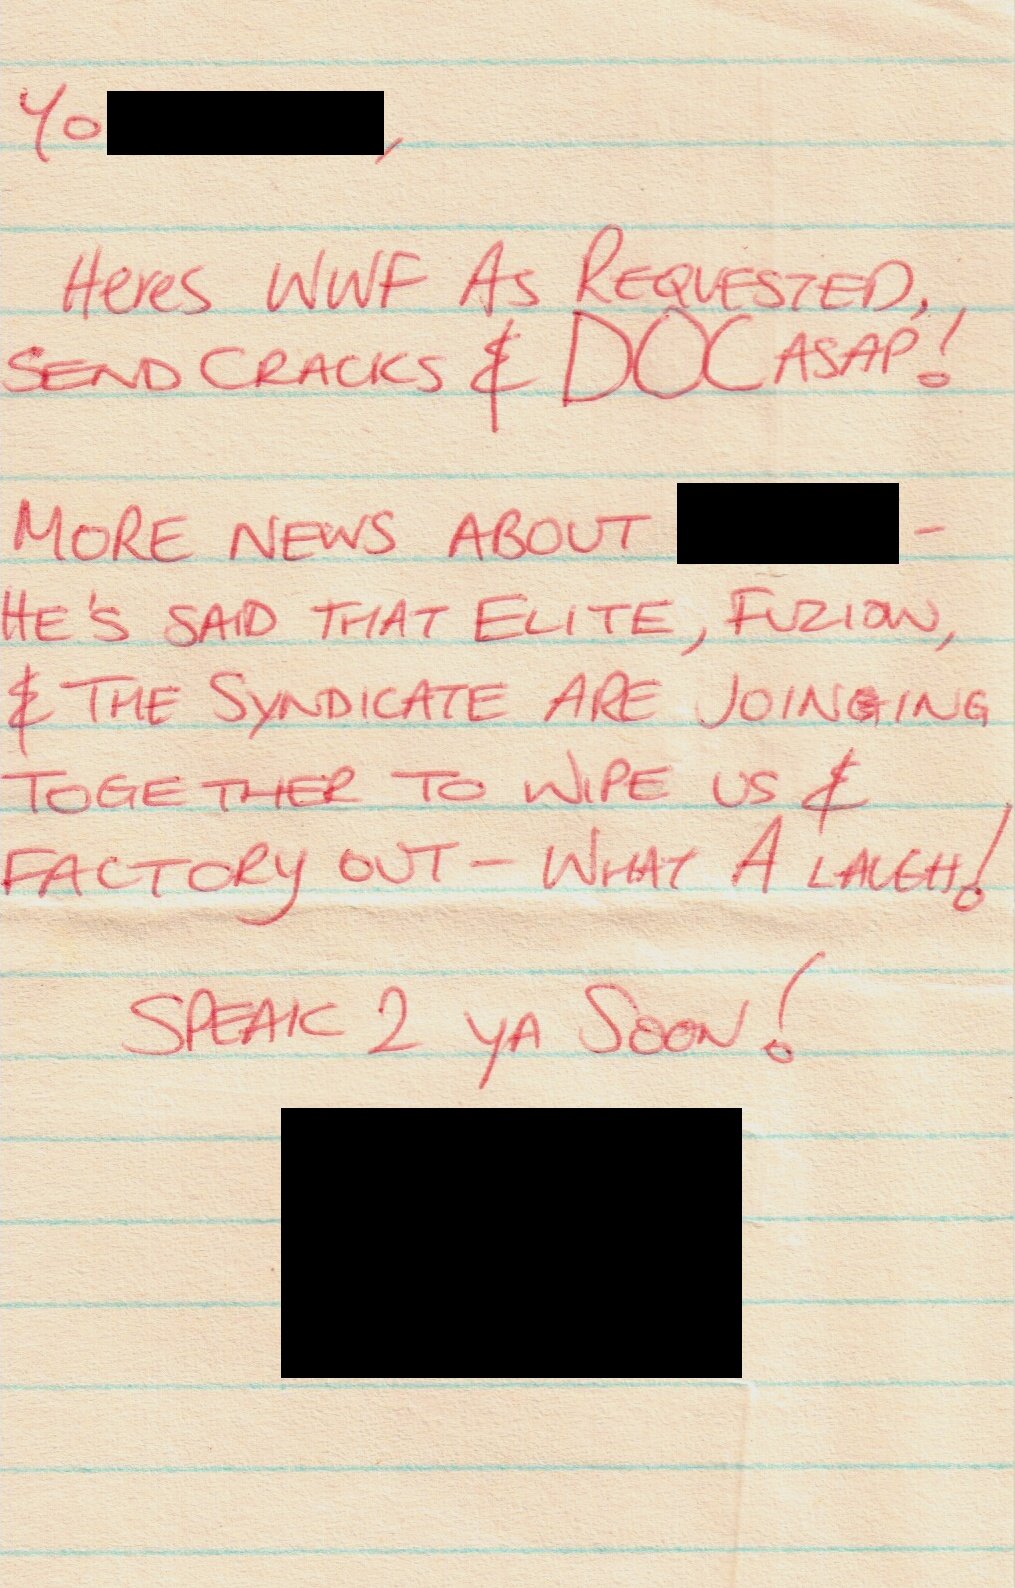 Yo ,
Heres WWF As Requested,
SEND CRACKS & DOC ASAP!
MORE NEWS ABOUT -
HE'S SAID THAT ELITE, FUZION,
& THE SYNDICATE ARE JOINGING
TOGETHER TO WIPE US &
FACTORY OUT - WHAT A LAUGH!
SPEAK 2 YA SOON!